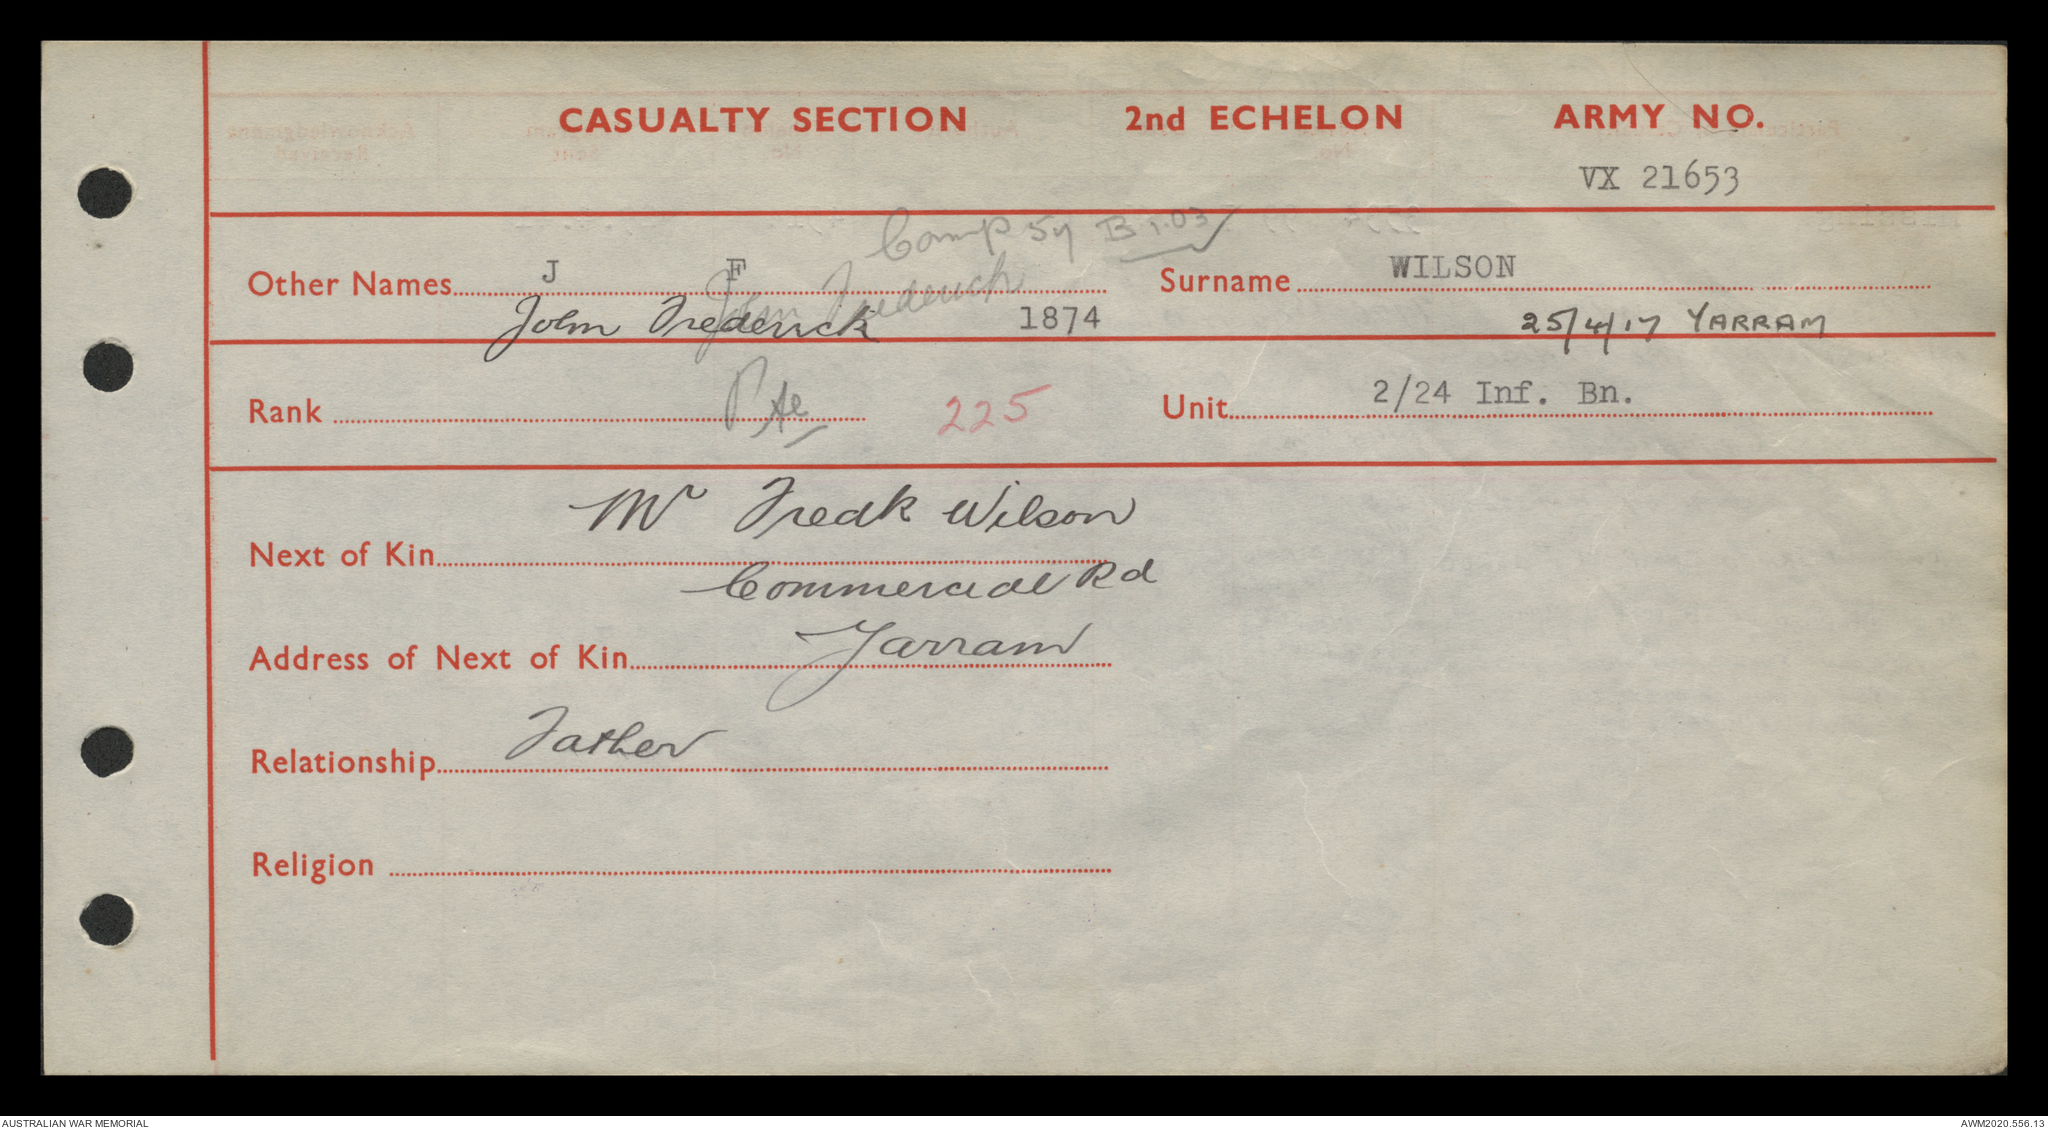 CASUALTY SECTION 2nd ECHELON ARMY NO.
VX 21653
Camp 57 B 1.03
Other Names J F John Frederick Surname WILSON
John Frederick 1874 25/4/17 YARRAM
Rank Pte 225 Unit 2/24 Inf. Bn.
Mr Fredk Wilson
Next of Kin
Commercial Rd
Address of Next of Kin Yarram
Relationship Father
Religion
AUSTRALIAN WAR MEMORIAL AWM2020.556.13